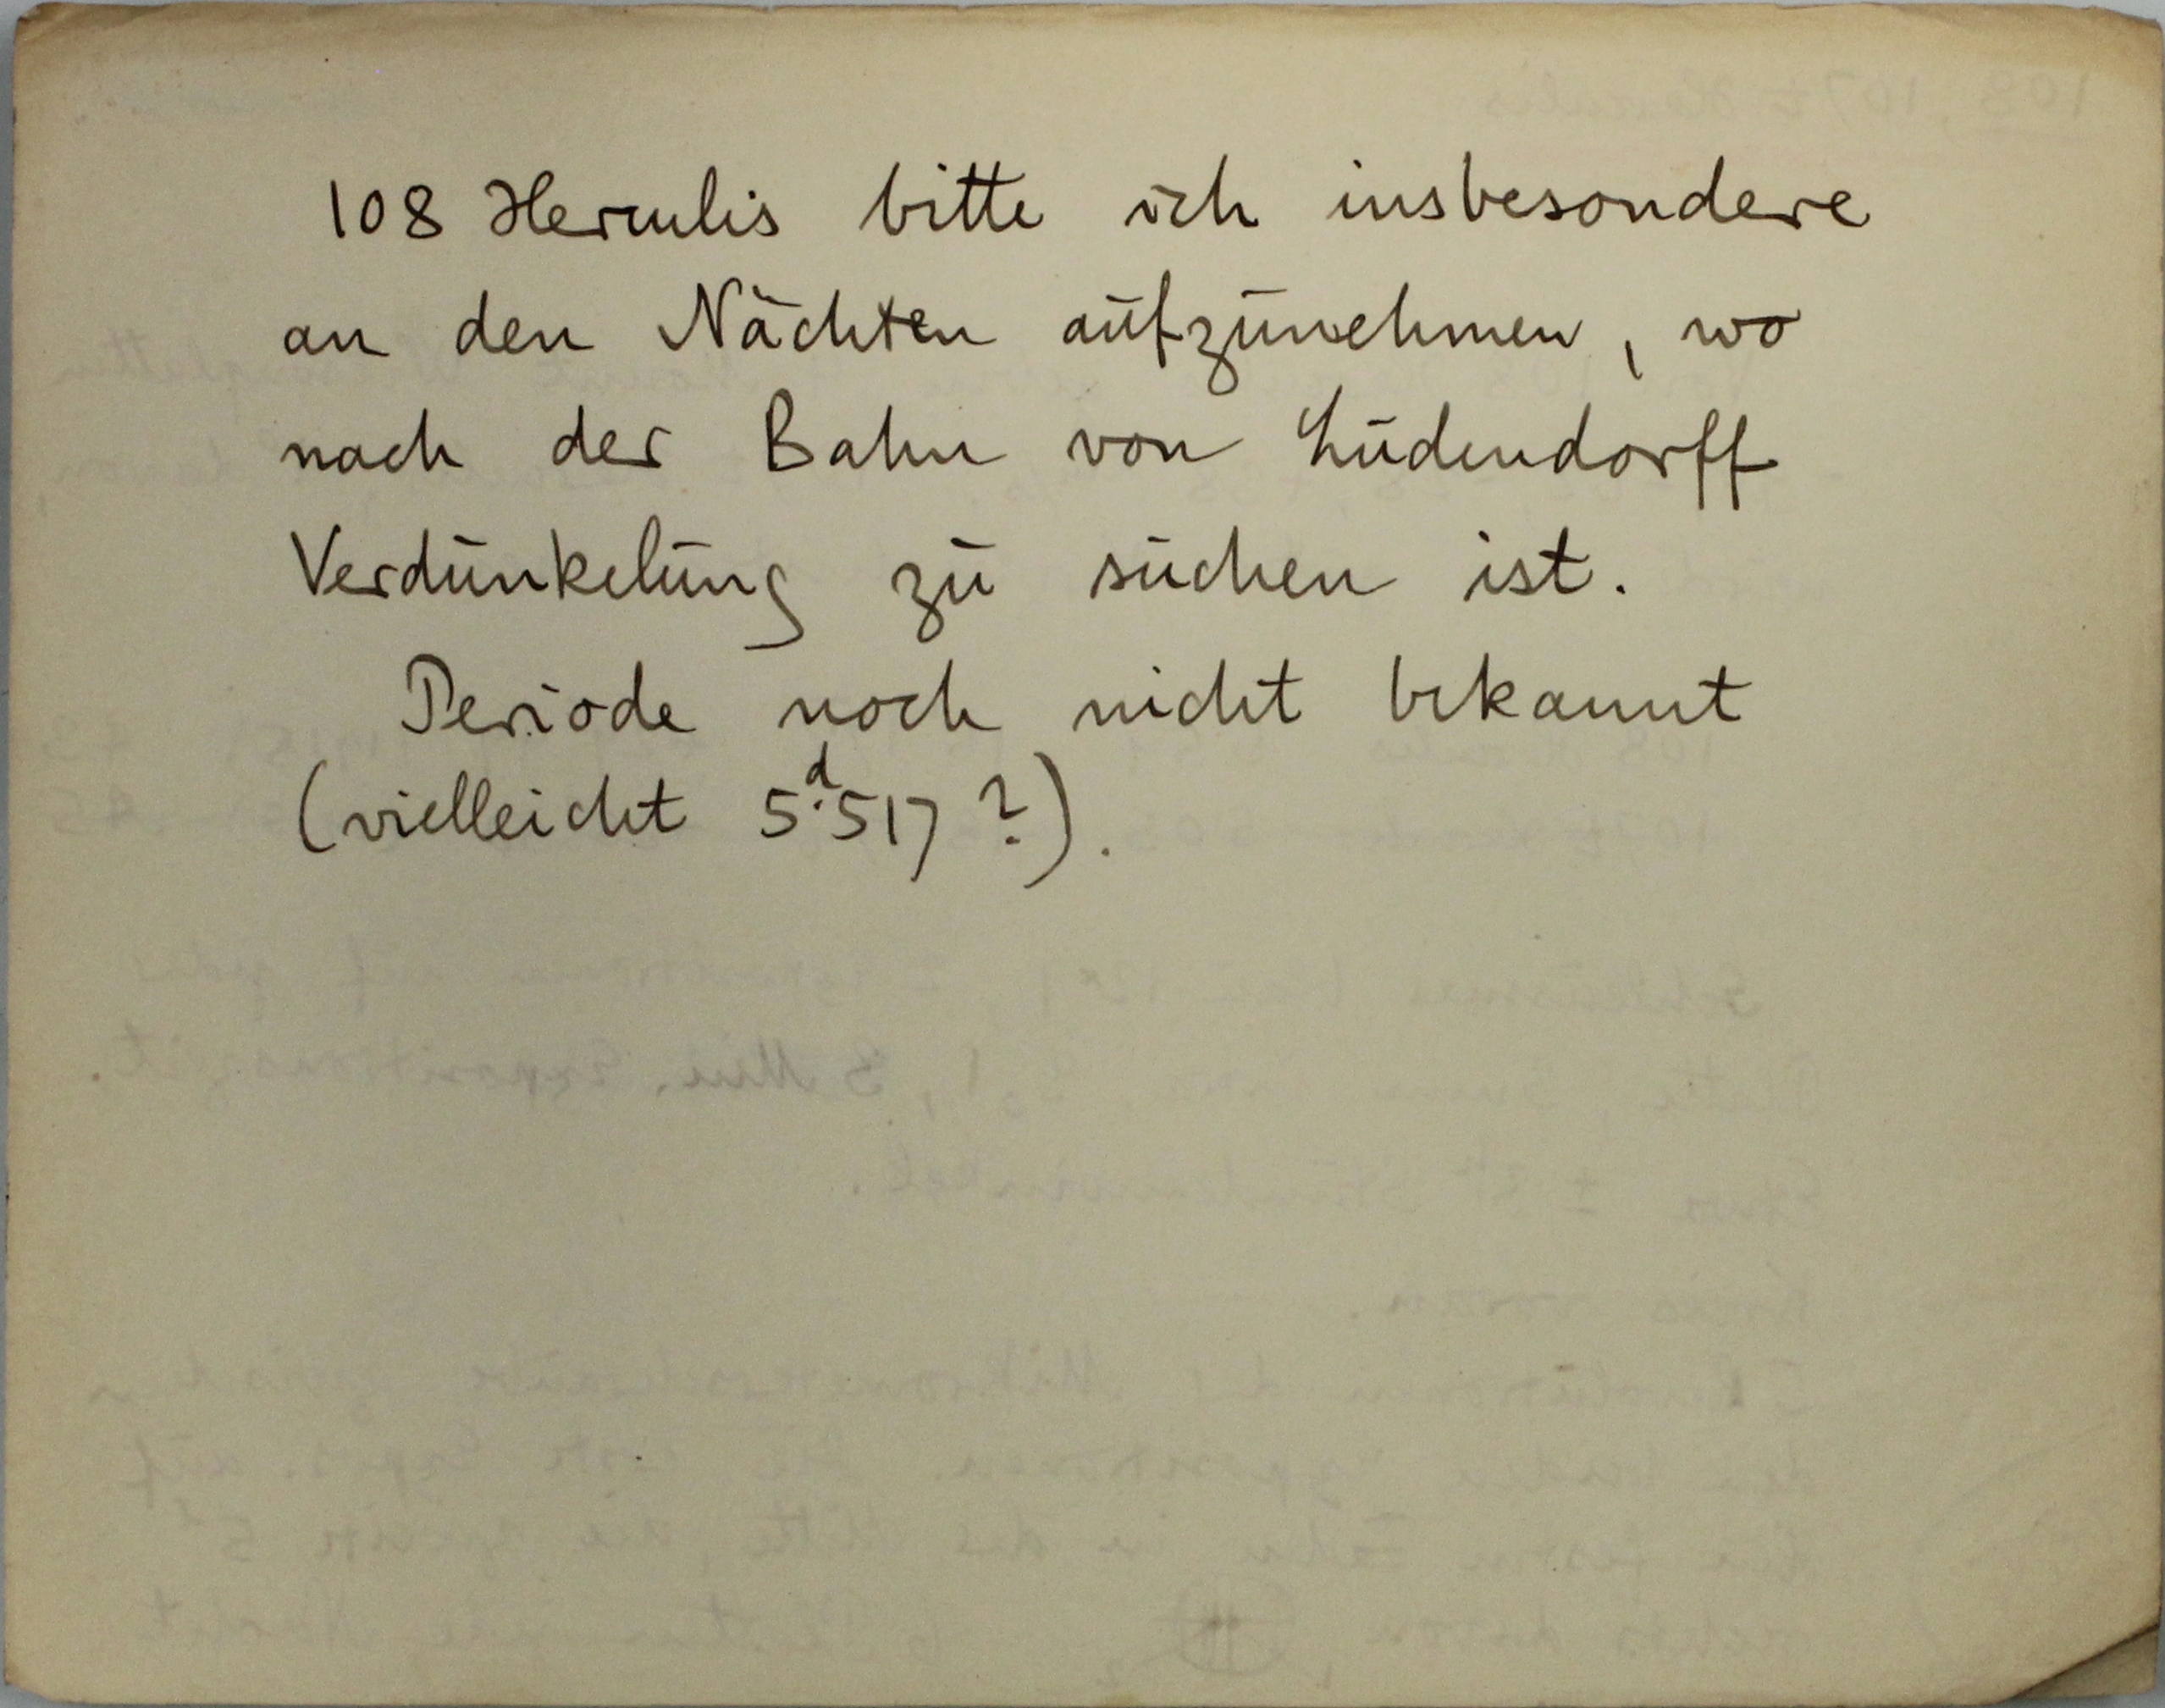 108 Herculis bitte ich insbesondere
an den Nächten aufzunehmen, wo
nach der Bahn von Ludendorff
Verdunkelung zu suchen ist.
Periode noch nicht bekannt
(vielleicht 5ᵈ.517 ?).